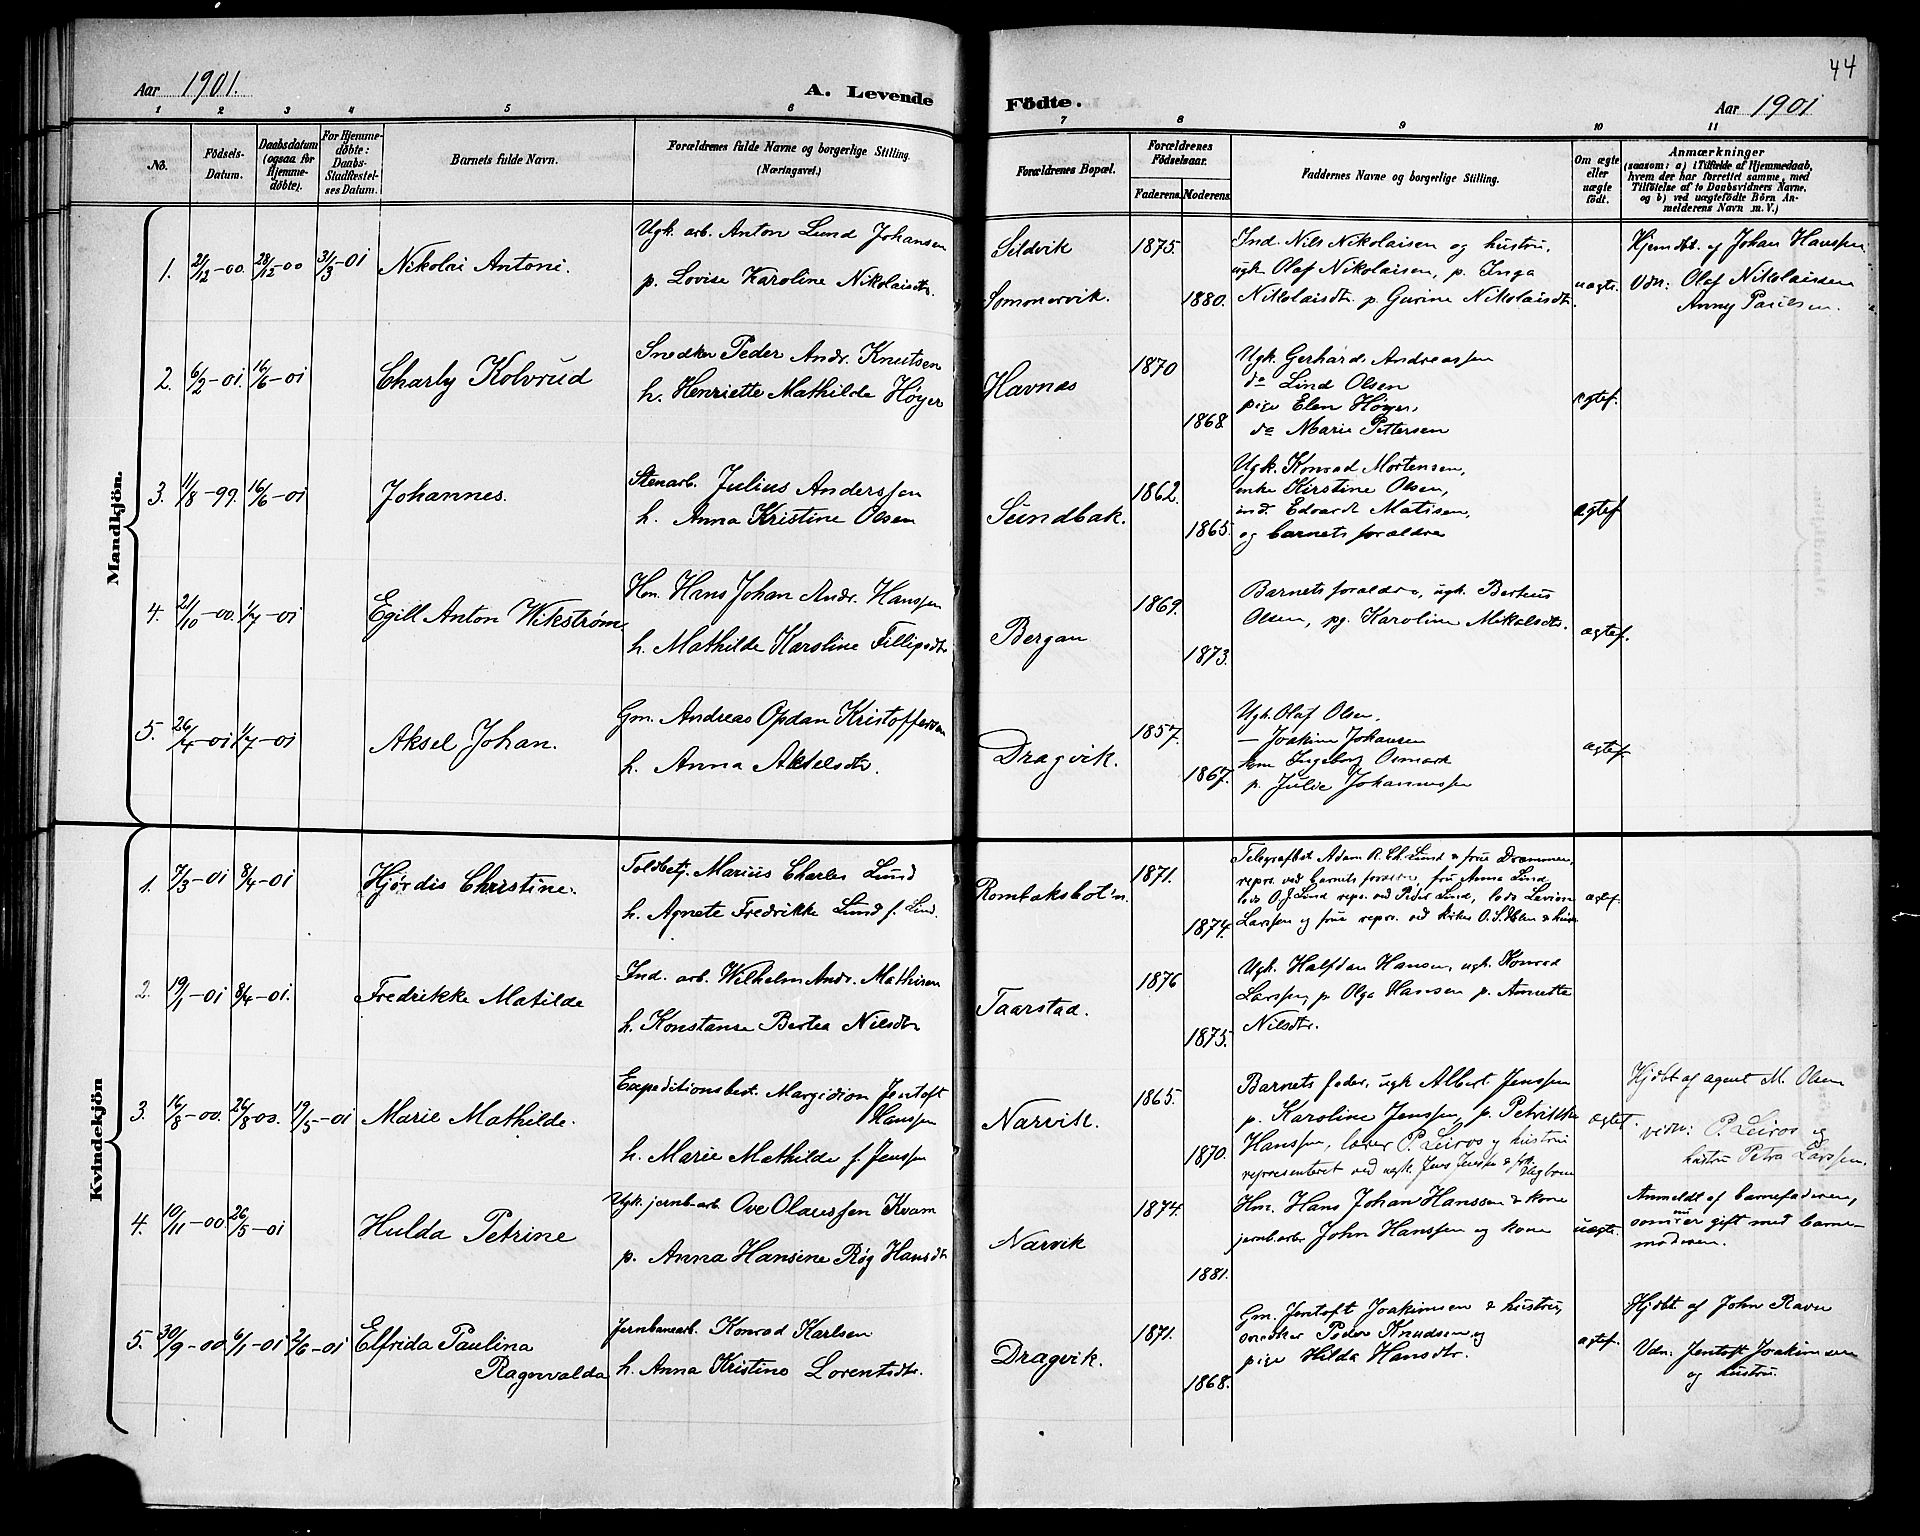 44
Aar 1901.
A. Levende
Födte.
Aar 1901
1 2 3 4 5 6 7 8 9 10 11
No.
Födsels-
Datum.
Daabsdatum
(ogsaa för
Hjemme-
döbte).
For Hjemme-
döbte:
Daabs-
Stadfæstel-
ses Datum.
Barnets fulde Navn.
Forældrenes fulde Navne og borgerlige Stilling.
(Næringsvei.)
Forældrenes Bopæl.
Forældrenes
Födselsaar.
Faderens.
Moderens.
Faddernes Navne og borgerlige Stilling.
Om ægte
eller
uægte
födt.
Anmærkninger
(saasom: a) i Tilfælde af Hjemmedaab,
hvem der har forrettet samme, med
Tilföielse af to Daabsvidners Navne.
og b) ved uægtefödte Börn An-
melderens Navn m. V.)
Mandkjön.
1. 21/12-00. 28/12-00 31/3-01 Nikolai Antoni.
Ugk. arb. Anton Lund Johansen
p. Lovise Karoline Nikolaisdtr.
Sildvik
Somonervik.
1875.
1880.
Ind. Nils Nikolaisen og hustru,
ugk. Olaf Nikolaisen, p. Inga
Nikolaisdtr. p. Gurine Nikolaisdtr.
uægte.
Hjemdbt. af Johan Hanssen
Vdn: Olaf Nikolaissen
Anny Paulsen.
2. 6/2-01. 16/6-01 Charly Kolvrud
Snedker Peder Andr. Knutsen
h. Henriette Mathilde Høyer
Havnæs
1870
1868
Ugk. Gerhard Andreassen
do Lind Olsen
pige Elen Høyer,
do Marie Pettersen
ægtef.
3. 11/8-99. 16/6-01 Johannes.
Stenarb. Julius Anderssen
h. Anna Kristine Olsen
Sundbak.
1862.
1865.
Ugk. Konrad Mortensen,
enke Kirstine Olsen,
ind. Edvardt Matisen,
og barnets forældre
ægtef.
4. 21/10-00. 1/7-01 Egill Anton Wikstrøm
Hm. Hans Johan Andr. Hanssen
h. Mathilde Karoline Fillipsdtr.
Bergan
1869.
1873.
Barnets forældre, ugk. Berteus
Olsen, pg. Karoline Mikalsdtr.
ægtef.
5. 26/4-01 1/7-01 Aksel Johan.
Gm. Andreas Opdan Kristoffersen
h. Anna Akselsdtr.
Dragvik.
1857.
1867.
Ugk. Olaf Olsen,
— Joakim Johansen
Ingeborg Osmark
p. Julie Johannessen
ægtef.
Kvindekjön
1. 7/3-01 8/4-01 Hjørdis Christine.
Toldbetj. Marius Charles Lund
h. Agnete Fredrikke Lund f. Lind.
Rombaksbotn.
1871.
1874.
Telegrafbst Adam R. Ch. Lund & frue Drammen,
repr. ved barnets forældre, fru Anna Lind,
lods O. J. Lind repr. ved Peder Lind, lods Levinn
Larssen og frue repr. ved kirkes. O. S.
ægtef.
2. 19/1-01 8/4-01. Fredrikke Matilde
Ind. arb. Wilhelm Andr. Mathisen
h. Konstanse Bertea Nilsdtr.
Taarstad.
1876
1875.
Ugk. Halfdan Hansen, ugk. Konrad
Larssen, p. Olga Hansen p. Annetta
Nilsdtr.
3. 16/8-00. 26/8-00. 19/5-01 Marie Mathilde.
Expeditionsbest. Margidion Jentoft
Hanssen
h. Marie Mathilde f. Jenssen
Narvik.
1865.
1870.
Barnets fader, ugk Albert Jenssen
p. Karoline Jenssen, p. Petrikke
Hanssen, lærer P. Leiros og hustru
representeret ved ugk. Jens Jenssen &
ægtef.
Hjdbt af agent M. Olsen
vidn: P. Leiros og
hustru Petra Larssen.
4. 10/11-00. 26/5-01 Hulda Petrine
Ugk. jernb.arb. Ove Olaussen Kvam
p. Anna Hansine Røg Hansdtr
Narvik
1874.
1881.
Hm. Hans Johan Hanssen & kone
jernb.arb. John Hanssen og kone
uægte.
Anmeldt af barnefaderen,
som nu er gift med barne-
moderen.
5. 30/9-00 6/1-01 2/6-01 Elfrida Paulina
Ragnvalda
Jernbanearb. Konrad Karlsen
h. Anna Kristine Lorentsdtr.
Dragvik.
1871.
1868.
Gm. Jentoft Joakimsen & hustru,
snedker Peder Knudsen og
pige Hilda Hansdtr.
ægtef.
Hjdbt af John Ravn
Vdn: Jentoft Joakimsen
og hustru.